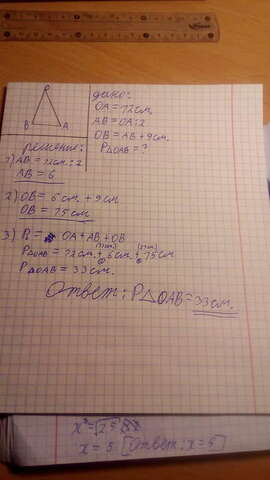 O
B
A
дано:
OA = 12см.
AB = OA : 2
OB = AB + 9см.
P△OAB = ?
решение:
1) AB = 12см : 2
AB = 6
2) OB = 6 см + 9см
OB = 15см
3) P = OA + AB + OB
P△OAB = 12см. + 6см + 15см
P△OAB = 33см.
Ответ: P△OAB = 33см.
x = 5 [Ответ: x = 5]